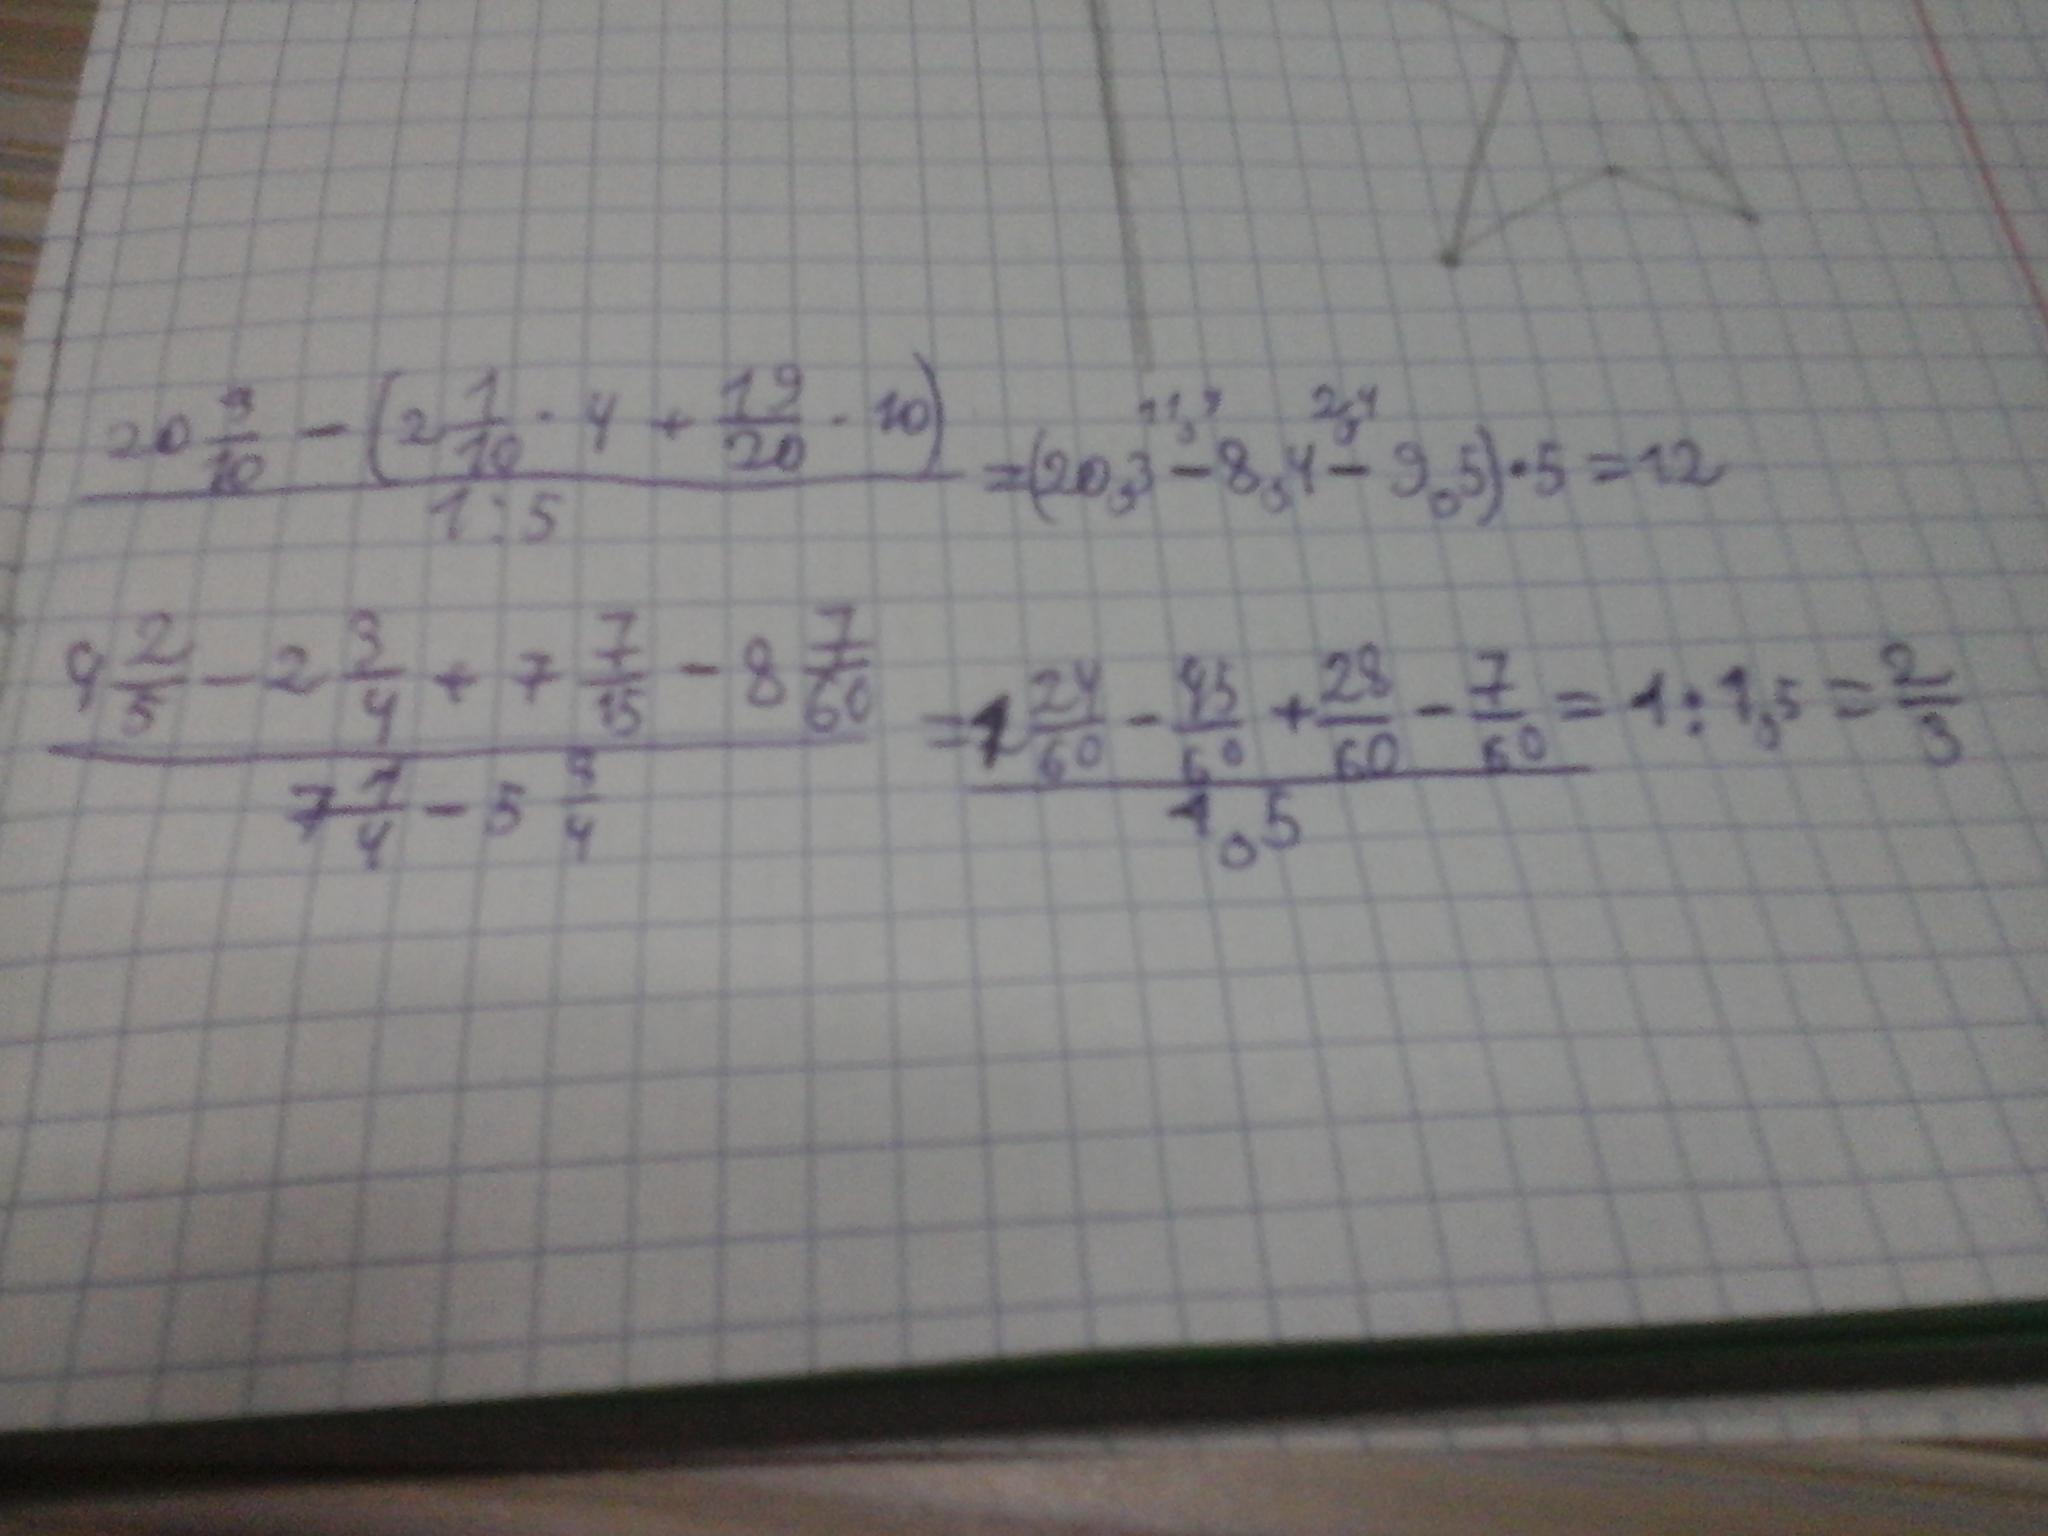 20 3/10 − (2 1/10 · 4 + 19/20 · 10) / 1:5 = (20,3 − 8,4 − 9,5) · 5 = 12
11,9 2,4
9 2/5 − 2 3/4 + 7 7/15 − 8 7/60 / 7 1/4 − 5 3/4 = 1 24/60 − 45/60 + 28/60 − 7/60 / 1,5 = 1 : 1,5 = 2/3